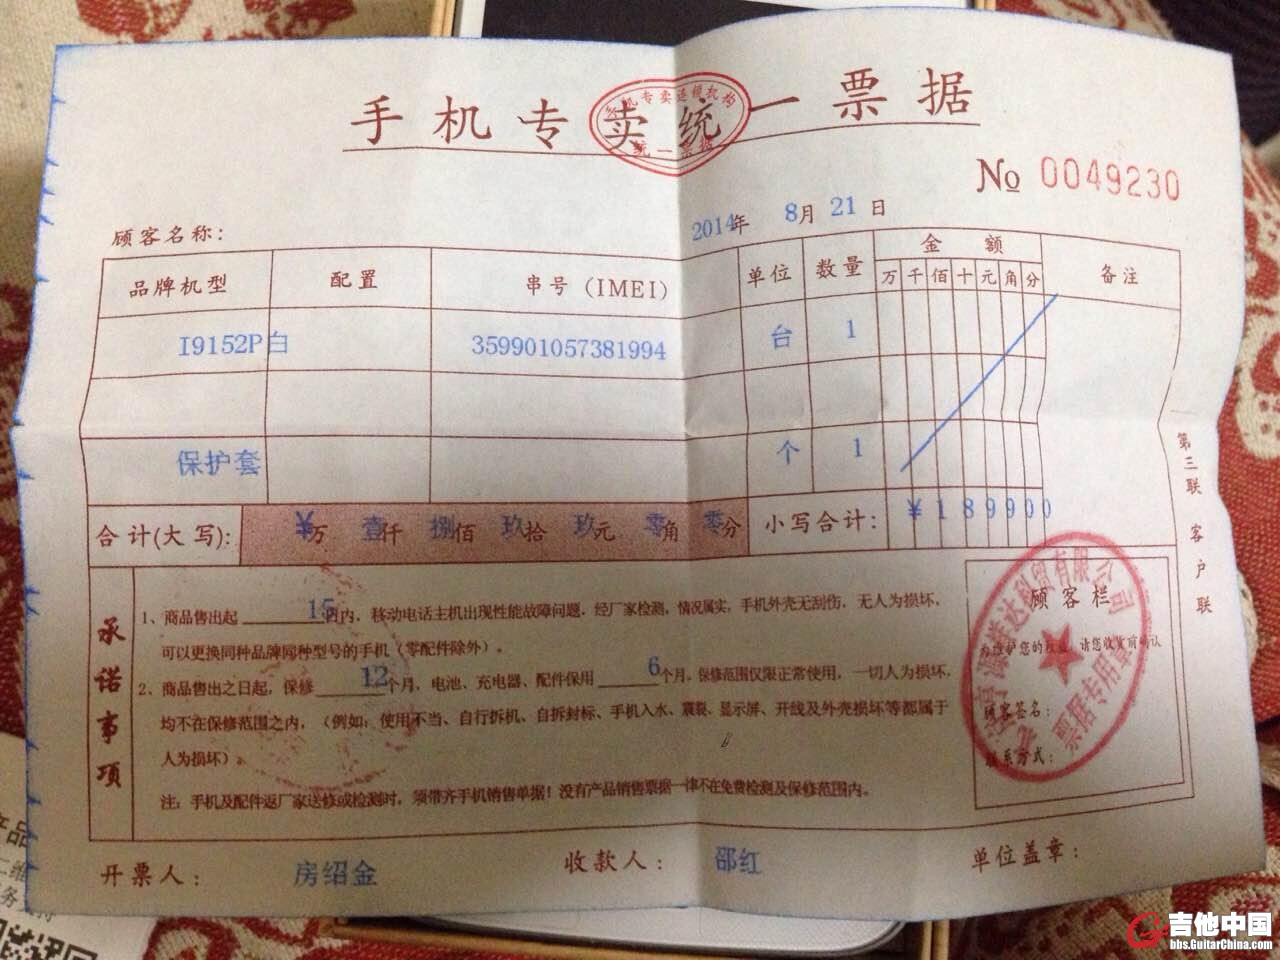 手机专卖统一票据
专卖连锁机构
统一票据
No 0049230
顾客名称：
2014年 8月 21日
品牌机型 配置 串号（IMEI） 单位 数量 金额 备注
万 千 佰 十 元 角 分
I9152P白 359901057381994 台 1
保护套 个 1
合计(大写)： ￥万 壹仟 捌佰 玖拾 玖元 零角 零分 小写合计： ￥189900
第三联 客户联
承诺事项
1、商品售出起 15日内，移动电话主机出现性能故障问题，经厂家检测，情况属实，手机外壳无刮伤，无人为损坏，
可以更换同种品牌同种型号的手机（零配件除外）。
2、商品售出之日起，保修 12个月，电池、充电器、配件保用 6个月，保修范围仅限正常使用，一切人为损坏，
均不在保修范围之内，（例如：使用不当、自行拆机、自拆封标、手机入水、震裂、显示屏、开线及外壳损坏等都属于
人为损坏）。
注：手机及配件返厂家送修或检测时，须带齐手机销售单据！没有产品销售票据一律不在免费检测及保修范围内。
顾客栏
为维护您的权益，请您收货前确认
顾客签名：
联系方式：
科贸有限公司
票据专用章
开票人： 房绍金 收款人： 邵红 单位盖章：
产品
二维
吉他中国
bbs.GuitarChina.com